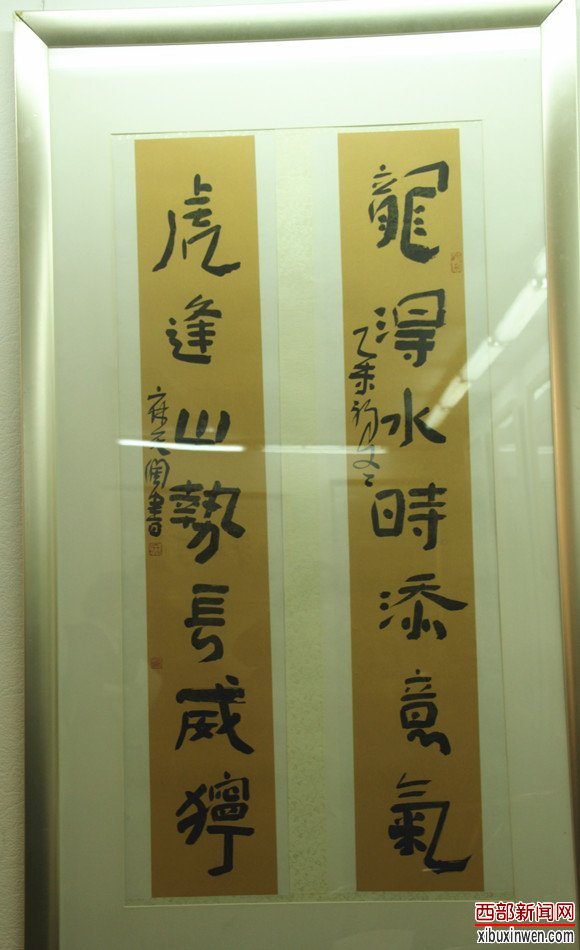 龍得水時添意氣
乙未初夏
虎逢山勢長威獰
書
西部新闻网
xibuxinwen.com